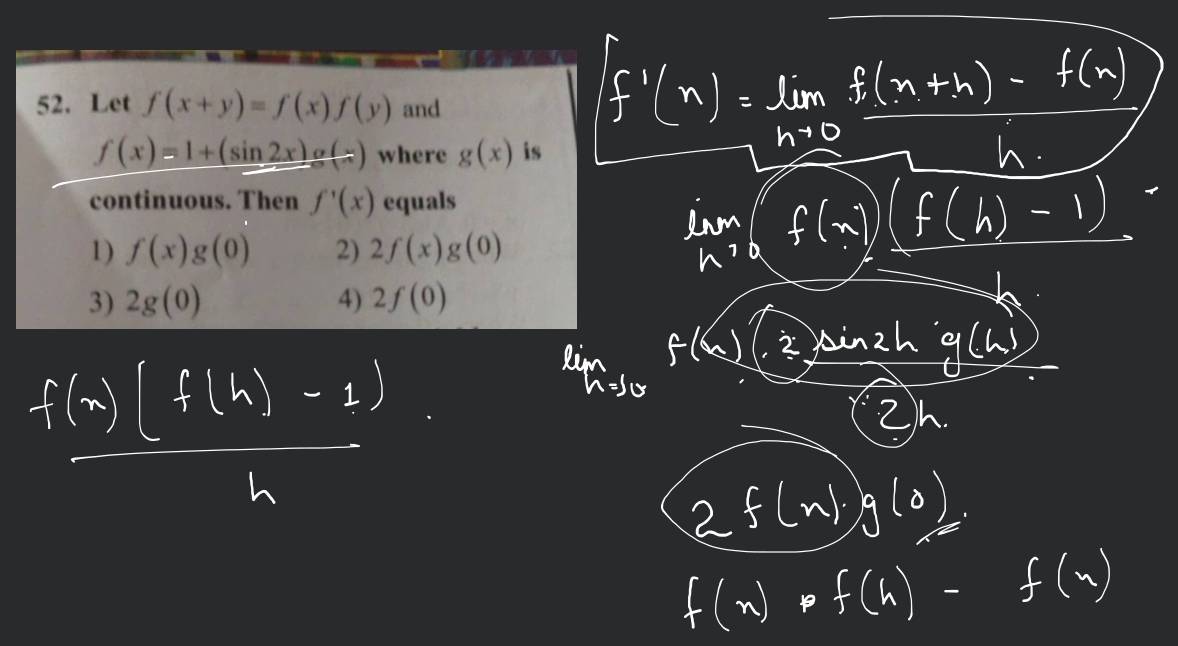 52. Let f(x+y)=f(x)f(y) and
f(x)=1+(sin 2x)g(x) where g(x) is
continuous. Then f'(x) equals
1) f(x)g(0) 2) 2f(x)g(0)
3) 2g(0) 4) 2f(0)
f(n) [ f(h) - 1)
h
f'(n) = lim f(n+h) - f(n)
h→0 h.
lim f(n) (f(h) - 1)
h→0 h.
lim f(n) 2 sin2h g(h)
h=>0 2h.
2 f(n). g(0).
f(n) • f(h) - f(n)